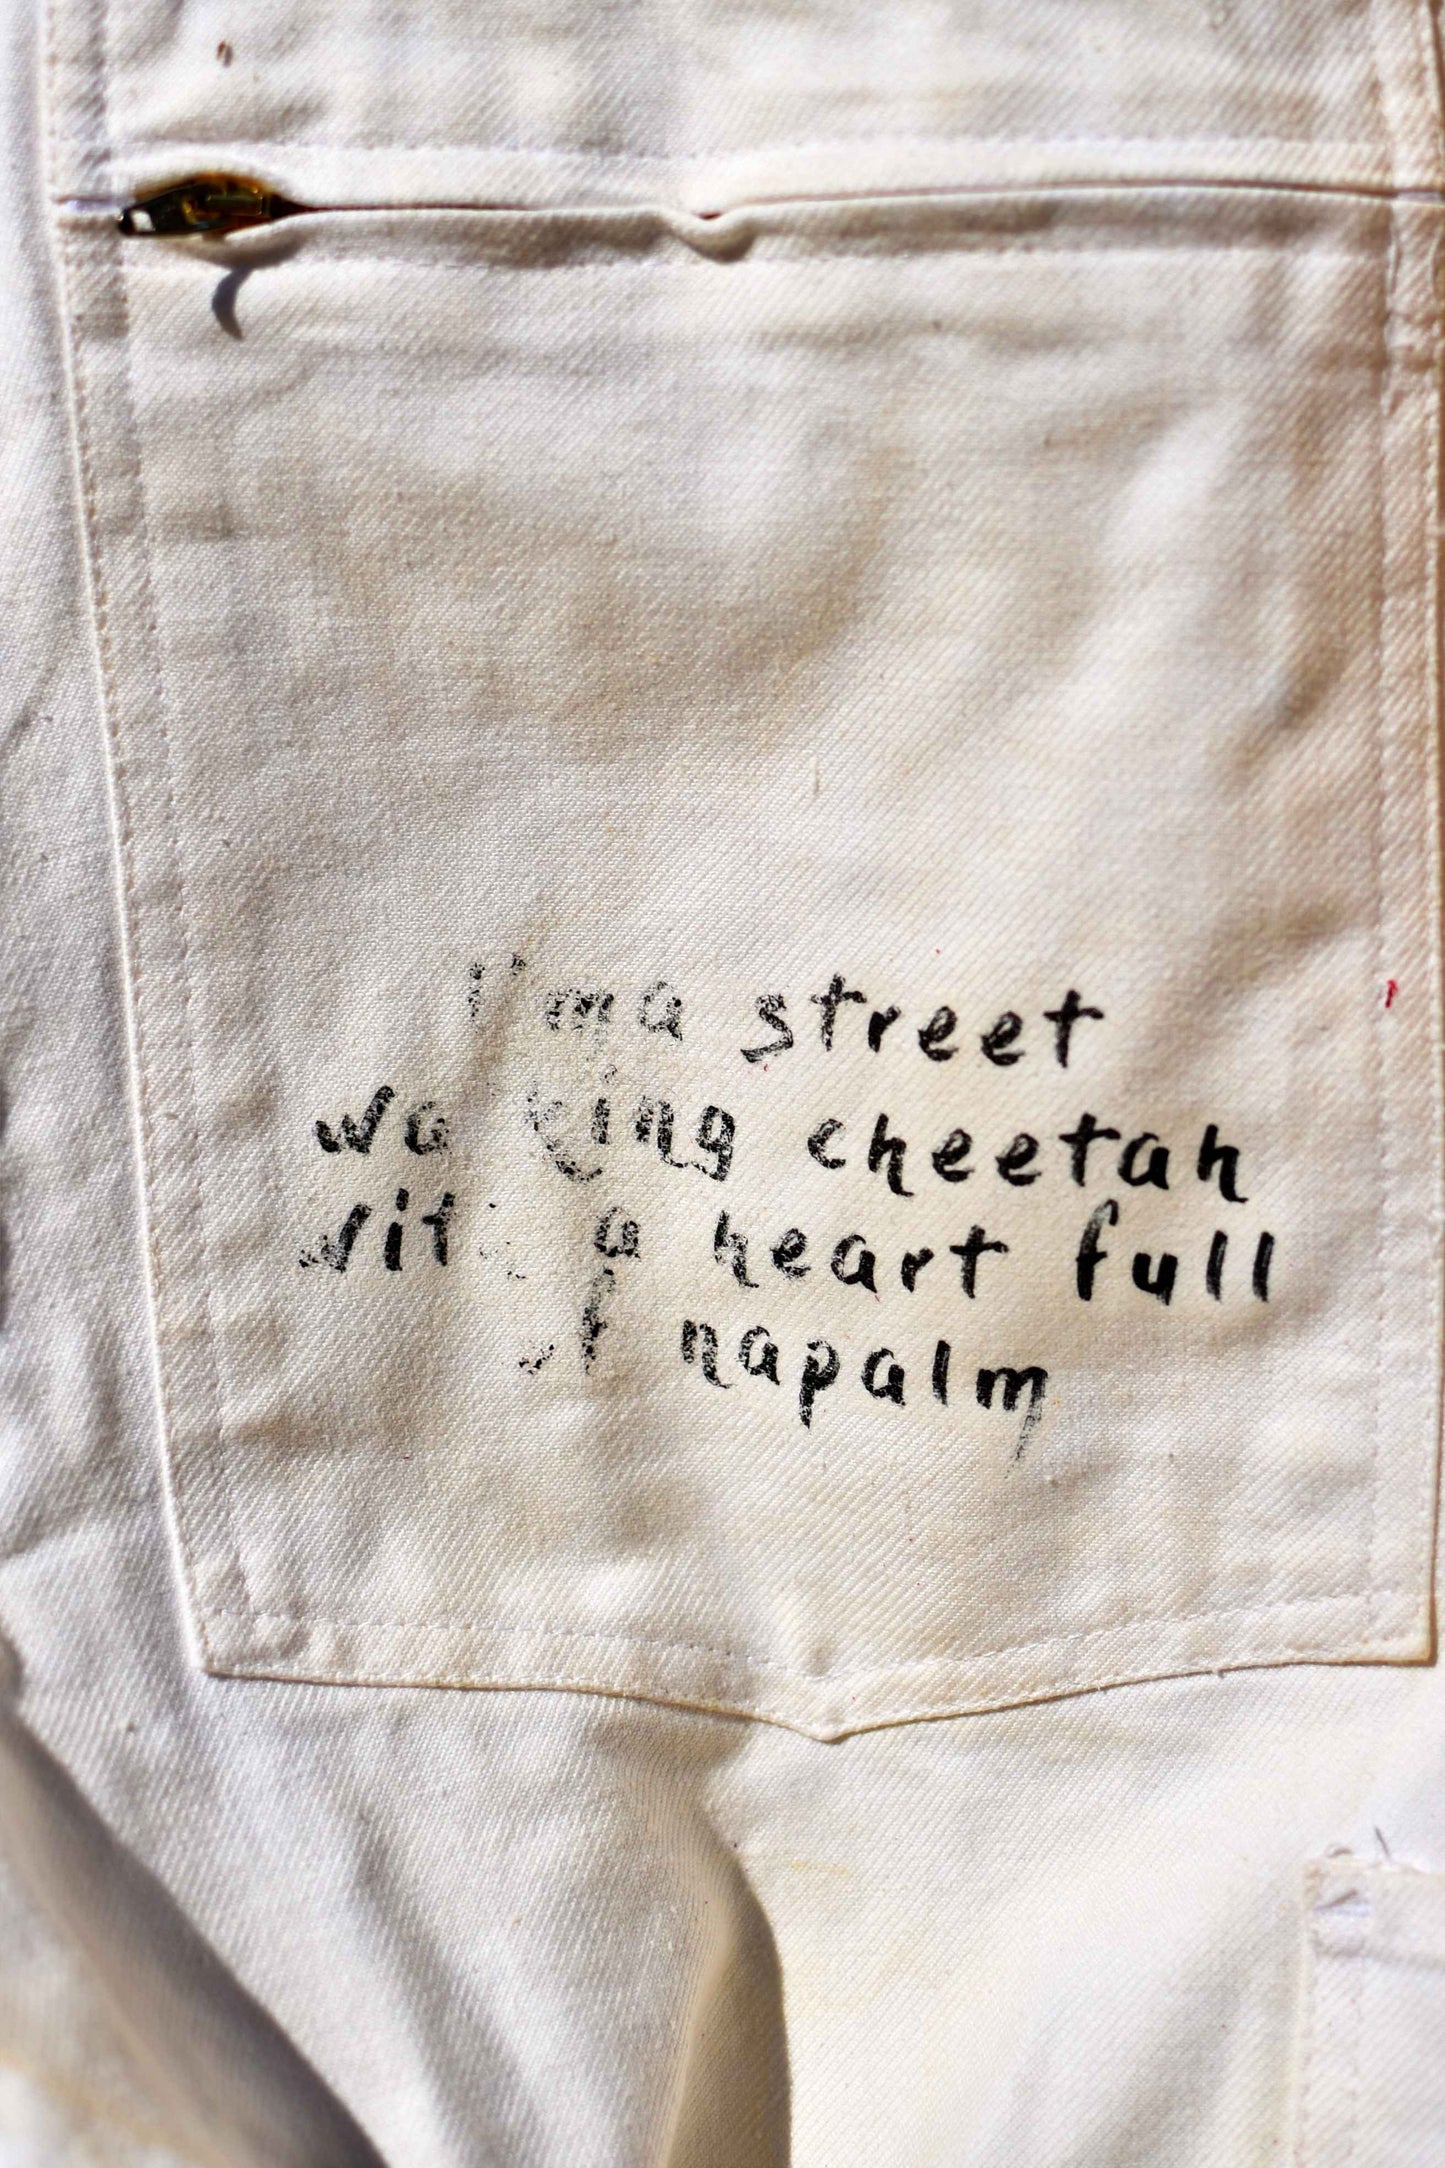 I'm a street
walking cheetah
with a heart full
of napalm